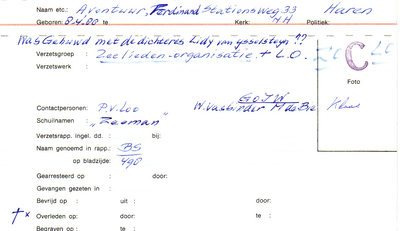 Naam etc.: Aventuur, Ferdinand Stationsweg 33 Haren
Geboren: 8.4.00 te Kerk: NH Politiek:
Was Gehuwd met de dichteres Lidy van ijsselsteyn??
Verzetsgroep : Zeelieden-organisatie, + L.O.
Verzetswerk :
C LO
Foto
Contactpersonen: P.v. Loo GOJW
W. vasbinder M de Bie Klaas
Schuilnaam : „Zeeman"
Verzetsrapp. ingel. dd. : bij:
Naam genoemd in rapp.: BS
op bladzijde: 490
Gearresteerd op : door :
Gevangen gezeten in :
Bevrijd op : uit : door:
† x Overleden op: door: te :
Begraven op : te :